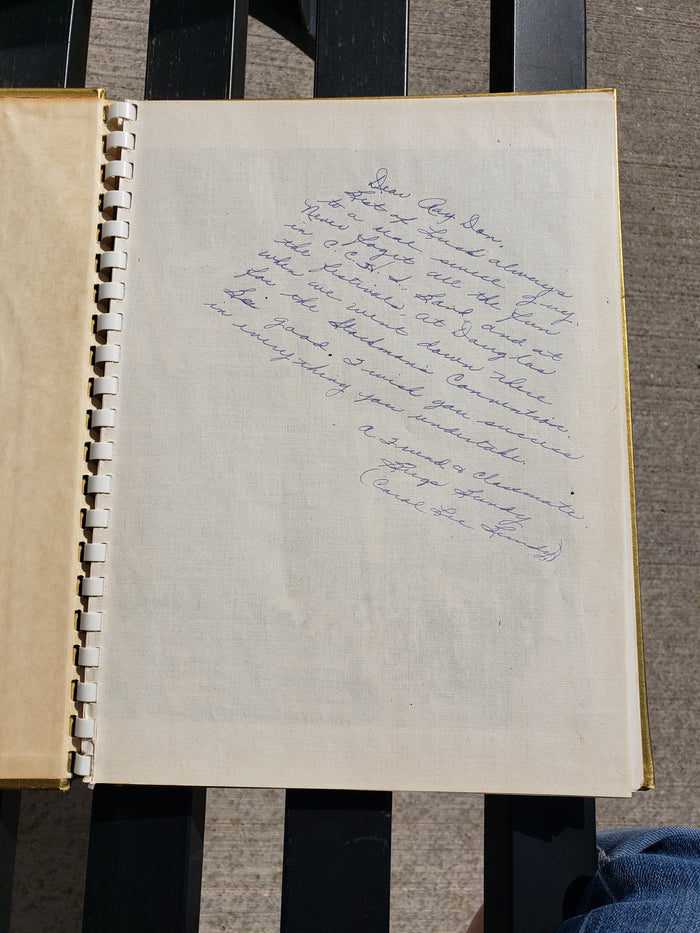 Dear Ray Don,
Lots of Luck always
to a real guy
Never forget all the fun
in C.C.H.S. Band and at
the festivals, at Douglas
when we went down there
for the Convention.
So good. I wish you success
in everything you undertake.
A Friend & Classmate
(Carol Lee)